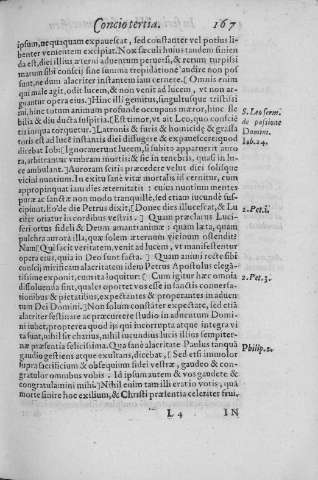 Concio tertia. 167
ipsum, nequaquam expauescat, sed constanter vel potius li-
benter venientem excipiat. Nox sæculi huius tandem finien
da est, diei illius æterni aduentum peruersi, & rerum turpissi
marum sibi conscij sine summa trepidatione audire non pos
sunt, ne dum alacriter instantem iam cernere. [ Omnis enim
qui male agit, odit lucem, & non venit ad lucem, vt non ar-
guantur opera eius. ] Hinc illi gemitus, singultusque tristhi
mi, hinc totum animam profunde occupans mæror, hinc fle
bilia & diu ducta suspiria. [ Est timor, vt ait Leo, quo conscië
tia iniqua torquetur. ] Latronis & furis & homicidę & grassa
toris est ad lucē instantis diei diffugere & expauescere quod
dicebat Iob: [ Ignorauerunt lucem, si subito apparuerit auro
ra, arbitrantur vmbram mortis: & sic in tenebris, quasi in lu-
ce ambulant. ] Auroram scitis præcedere velut diei solisque
vicini nuntium. In exitu sanè vitæ mortalis id cernitur, cum
appropinquat iam dies æternitatis: cuius nuntium mentes
puræ ac sanctæ non modo tranquillè, sed etiam iucundè susc-
cipiunt. Eo de die Petrus dixit, [ Donec dies illucescat, & Lu
cifer oriatur in cordibus vestris. ] Quam præclarus Luci-
feri ortus fideli & Deum amanti animæ: quam læta, quam
pulchra aurora illi, quæ solem æternum vicinum ostendit?
Nam [ Qui facit veritatem, venit ad lucem, vt manifestentur
opera eius, quia in Deo sunt facta. ] Quam animi rectè sibi
conscij mirificam alacritatem idem Petrus Apostolus elegā-
tissimè exponit, cum ita loquitur: [ Cum igitur hæc omnia
dissoluenda sint, quales oportet vos esse in sanctis conuersa-
tionibus & pietatibus, expectantes & properantes in aduen
tum Dei Domini. ] Non solum constāter expectate, sed etiā
alacriter festinare ac præcurrere studio in aduentum Domi-
ni iubet, propterea quod ijs qui incorrupta atque integra vi
ta sunt, nihil sit charius, nihil iucundius lucis illius sempiter-
næ præsentia felicissima. Qua sanè alacritate Paulus tanquā
gaudio gestiens atque exultans, dicebat, [ Sed etsi immolor
supra sacrificium & obsequium fidei vestræ, gaudeo & con-
gratulor omnibus vobis. Id ipsum autem & vos gaudete &
congratulamini mihi. ] Nihil enim tam illi eratin votis, quā
morte finire hoc exilium, & Christi præsentia celeriter frui.
S. Leo serm.
de passione
Domini.
Iob. 24.
2. Pet. 1.
2. Pet. 3.
Philip. 2.
L 4 IN